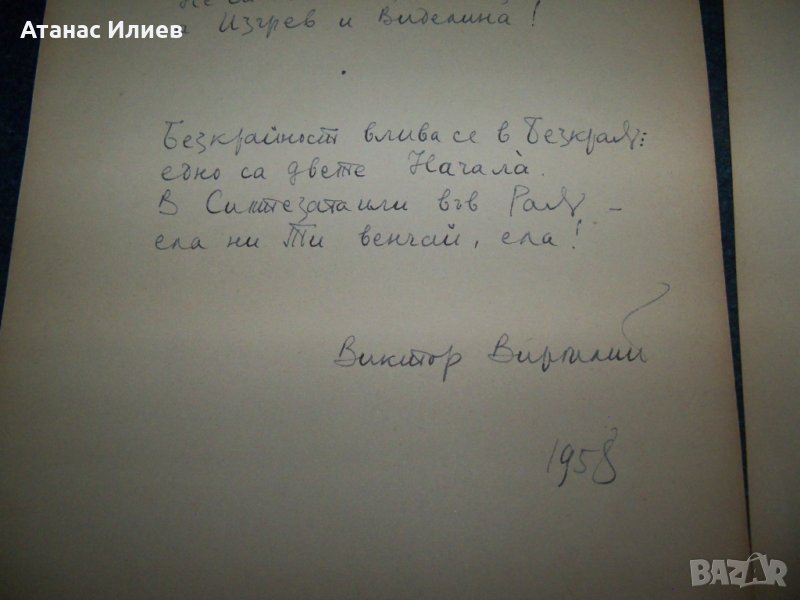 Атанас Илиев
и Изгрев и Виделина!
Безкрайност влива се в Безкрая:
едно са двете Начала.
В Синтезата или във Рая –
ела ни Ти венчай, ела!
Виктор Виргилий
1958
BAZAR